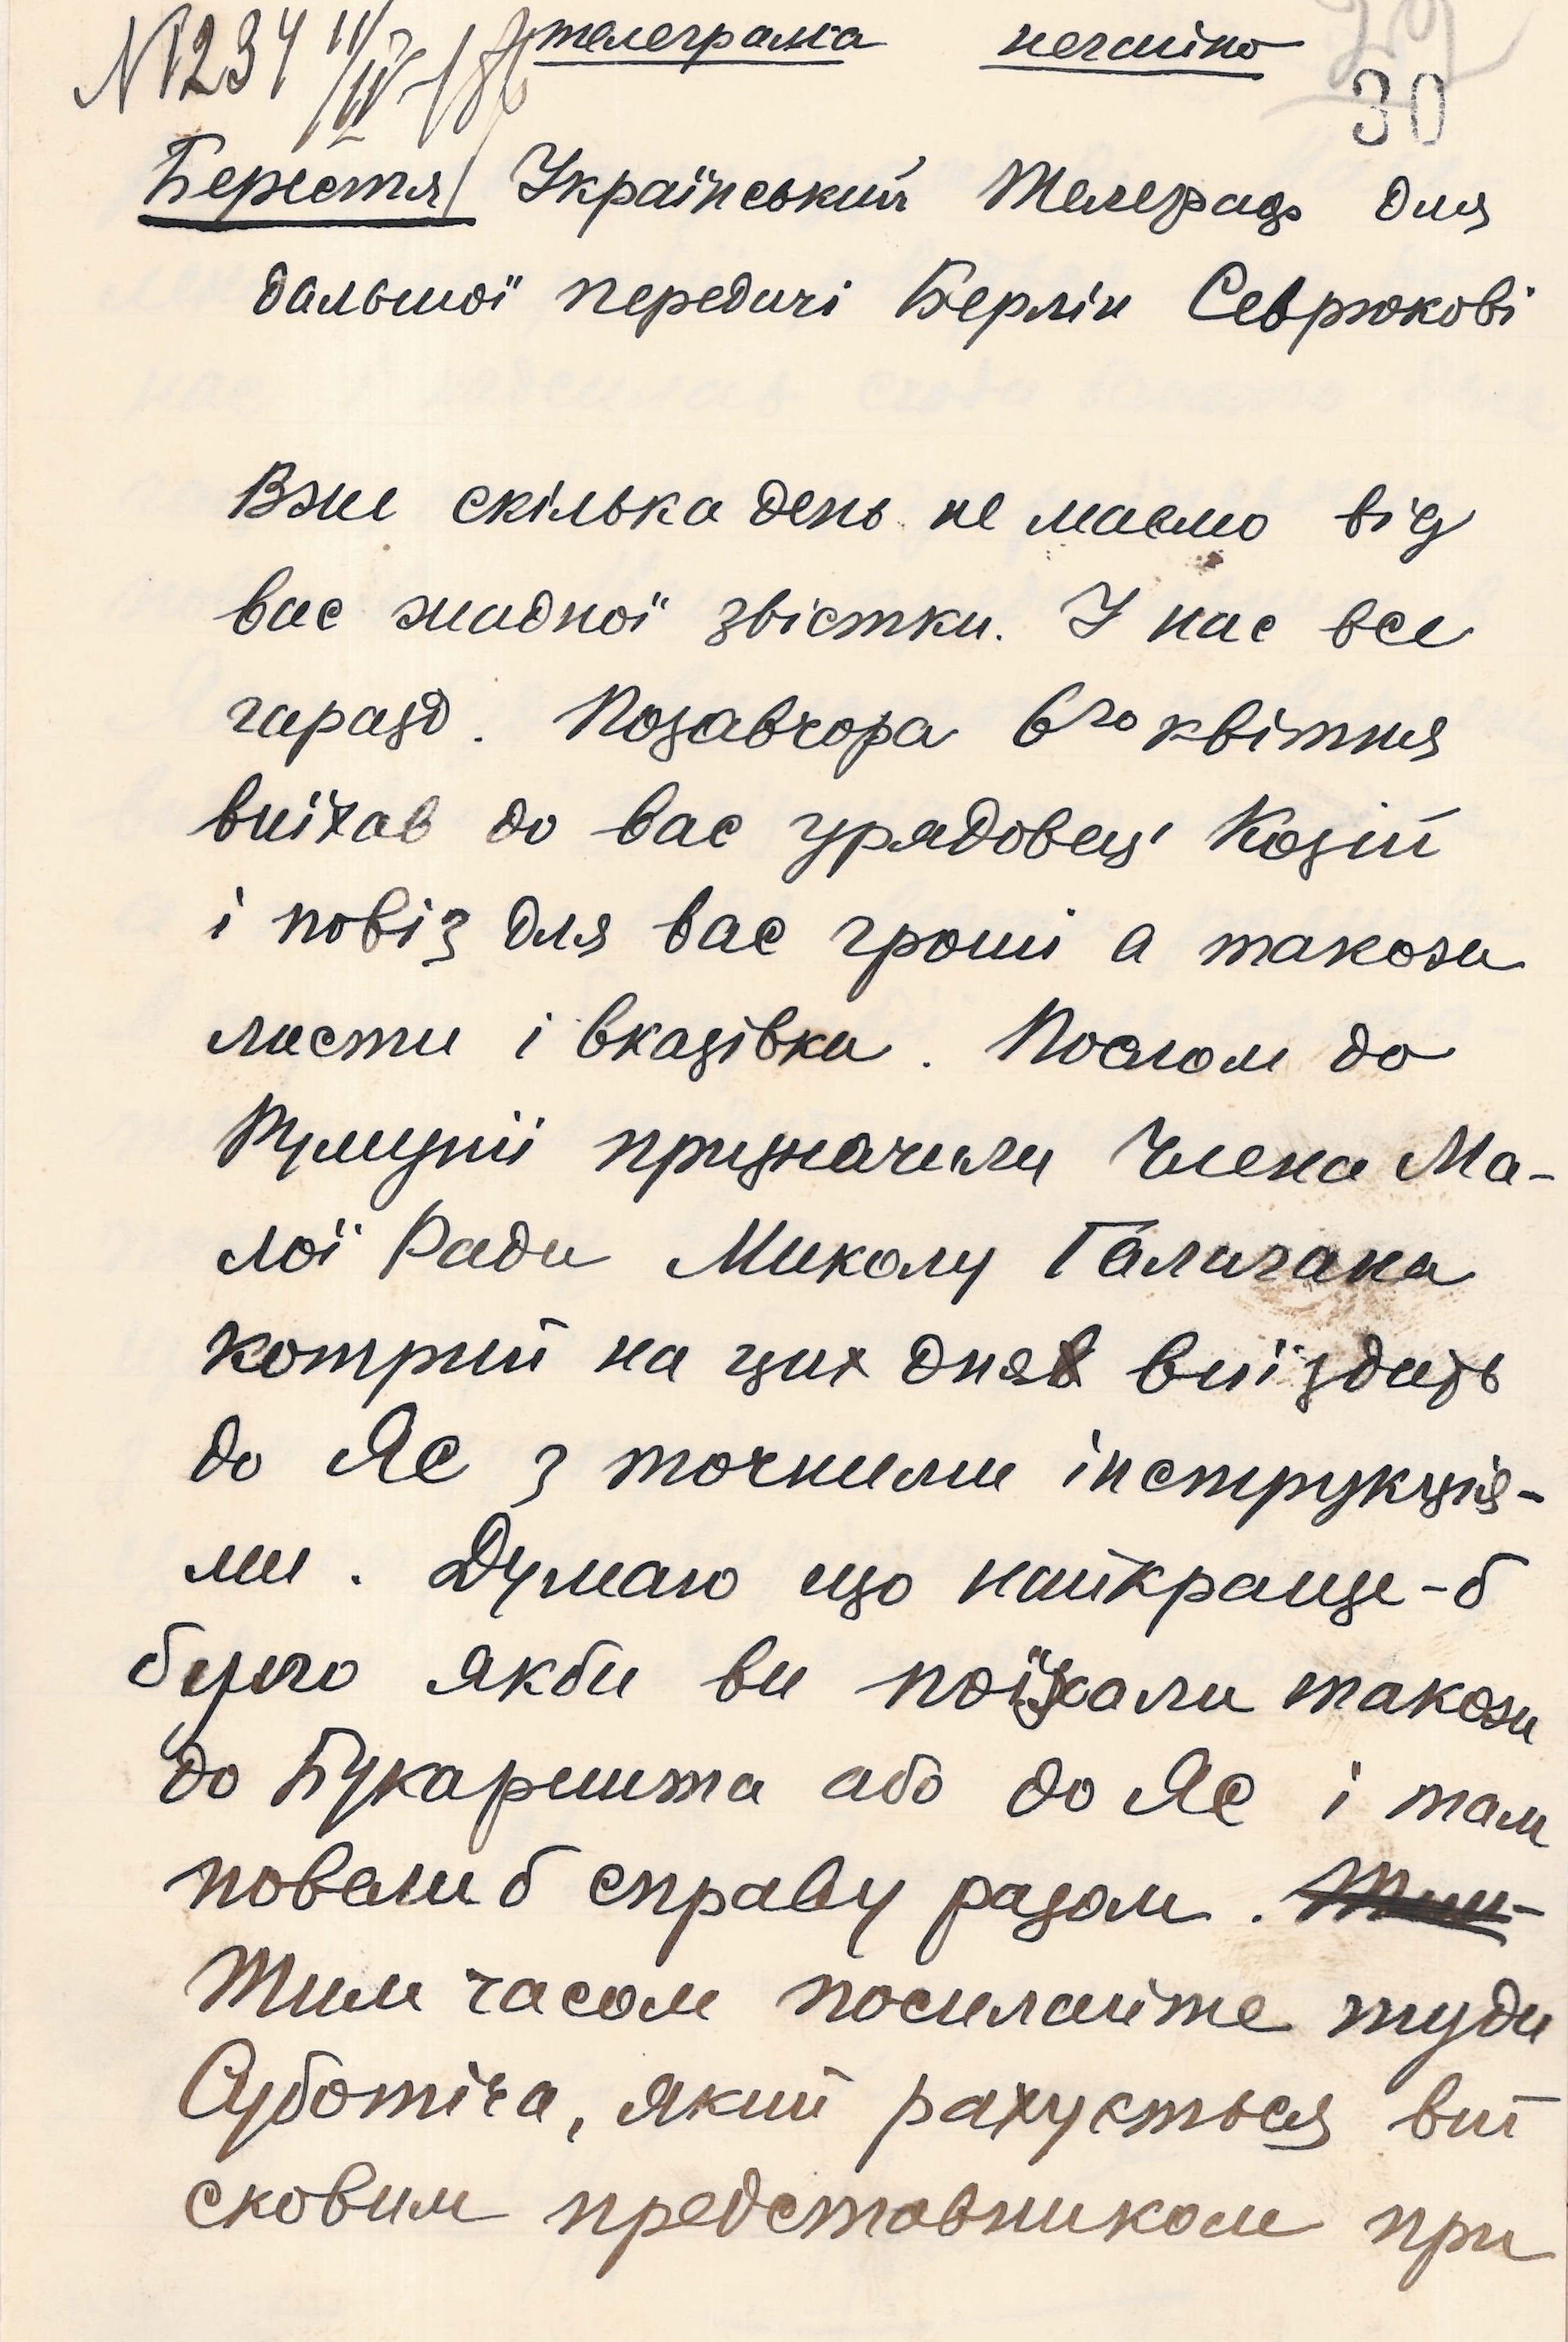 № 234 телеграма негайно
30
Берестя Український Телеграф для
дальшої передачі Берлін Севрюкові
Вже скілька день не маємо від
вас жадної звістки. У нас все
гаразд. Позавчора 6го квітня
виїхав до вас урядовець Козій
і повіз для вас гроші а також
листи і вказівки. Послом до
Румунії призначили Члена Ма-
лої Ради Миколу Галагана
котрий на цих днях виїздить
до Яс з точними інструкція-
ми. Думаю що найкраще-б
було якби ви поїхали також
до Букарешта або до Яс і там
повели б справу разом.
Тим часом посилайте туди
Суботіча, який рахується вій
сковим представником при